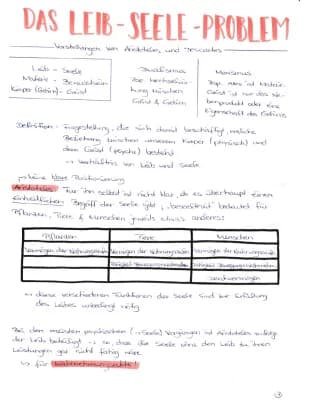 DAS LEIB-SEELE-PROBLEM
Vorstellungen von Aristoteles und Descartes
Leib - Seele
Materie - Bewusstsein
Körper (Gehirn) - Geist
Dualismus
Geist & Gehirn
Monismus
Geist ist nur das Ne-
benprodukt oder eine
Eigenschaft des Gehirns.
Definition: Fragestellung, die sich damit beschäftigt, welche
Beziehung zwischen unserem Körper (physisch) und
dem Geist (psyche) besteht
→ Verhältnis von Leib und Seele
keine klare Positionierung
Aristoteles: Für ihn selbst ist nicht klar, ob es überhaupt einen
einheitlichen Begriff der Seele gibt, "beseelt sein" bedeutet für
Pflanzen, Tiere & Menschen jeweils etwas anderes:
Pflanzen Tiere Menschen
Vermögen der Nahrungsaufn. Vermögen der Nahrungsaufn. Vermögen der Nahrungsaufn.
→ diese verschiedenen Funktionen der Seele sind zur Erfüllung
des Leibes unbedingt nötig
Bei den meisten psychischen (→ Seele) Vorgängen ist Aristoteles zufolge
der Leib beteiligt → so, dass die Seele ohne den Leib zu ihren
Leistungen gar nicht fähig wäre
→ für